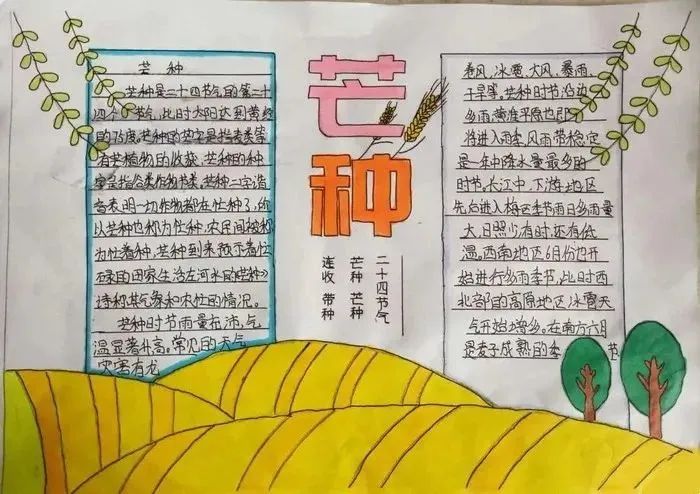 芒种
芒种是二十四节气的第二十
四个节气,此时太阳达到黄经
的75度。芒种的芒字是指麦类等
有芒植物的收获,芒种的种
字是指谷类作物
芒种二字谐
音表明一切作物都在忙种了,所
以芒种也称为忙种,农民间被称
为忙着种,芒种到来预示着忙
碌的田家生活左河水的《芒种》
诗称其气象和农忙的情况。
芒种时节雨量充沛,气
温显著升高。常见的天气
灾害有龙
芒种
二十四节气
芒种 芒种
连收 带种
卷风、冰雹、大风、暴雨、
干旱等。芒种时节沿边
乡雨,黄淮平原也即
将进入雨季,风雨带稳定
是一年中降水量最多的
时节,长江中、下游地区
先后进入梅区季节雨日多雨量
大日照少有时还有低
温。西南地区6月份也开
始进行多雨季节,此时西
北部的高原地区,冰雹天
气开始增多。在南方六月
是麦子成熟的季节